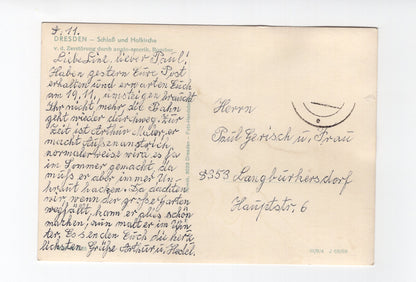 d. 11.
DRESDEN – Schloß und Hofkirche
v. d. Zerstörung durch anglo-amerik. Bomber
Liebe Lina, lieber Paul!
Haben gestern Eure Post
erhalten und erwarten Euch
am 19.11., umsteigen braucht
Ihr nicht mehr, die Bahn
geht wieder durchweg. Zur
Zeit ist Arthur Maler, er
macht Außenanstrich,
normalerweise wird es ja
im Sommer gemacht, da
muß er aber immer Un-
kraut hacken. Da dachten
wir, wenn der große Garten
wegfällt, kann er alles schön
machen, nun malt er im Win-
ter. Es senden Euch die herz-
lichsten Grüße Arthur u. Hedel.
Herrn
Paul Gerisch u. Frau
8353 Langburkersdorf
Hauptstr. 6